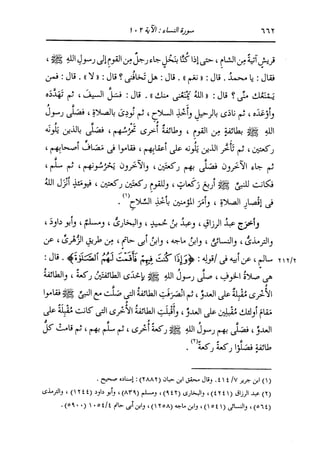 ٦٦٢ سورة النساء : الآية ١٠٢
قريش آتية من الشام ، حتى إذا كنا بنخل جاء رجل من القوم إلى رسول الله ﷺ ،
فقال : يا محمد . قال : « نعم » . قال : هل تخافنى ؟ قال : « لا » . قال : فمن
يمنعك منى ؟ قال : « الله يمنعنى منك » . قال : فسل السيف ، ثم تهدده
وأوعده ، ثم نادى بالرحيل وأخذ السلاح ، ثم نودى بالصلاة ، فصلى رسول
الله ﷺ بطائفة من القوم ، وطائفة أخرى تحرسهم ، فصلى بالذين يلونه
ركعتين ، ثم تأخر الذين يلونه على أعقابهم ، فقاموا فى مصاف أصحابهم ،
ثم جاء الآخرون فصلى بهم ركعتين ، والآخرون يحرسونهم ، ثم سلم ،
فكانت للنبى ﷺ أربع ركعات ، وللقوم ركعتين ركعتين ، فيومئذ أنزل الله
فى إقصار الصلاة ، وأمر المؤمنين بأخذ السلاح (١) .
وأخرج عبد الرزاق ، وعبد بن حميد ، والبخارى ، ومسلم ، وأبو داود ،
والترمذى ، والنسائى ، وابن ماجه ، وابن أبى حاتم ، من طريق الزهرى ، عن
٢١٣/٢ سالم ، عن أبيه فى / قوله : ﴿ وإذا كنت فيهم فأقمت لهم الصلاة ﴾ . قال :
هى صلاة الخوف ، صلى رسول الله ﷺ بإحدى الطائفتين ركعة ، والطائفة
الأخرى مقبلة على العدو ، ثم انصرفت الطائفة التى صلت مع النبى ﷺ فقاموا
مقام أولئك مقبلين على العدو ، وأقبلت الطائفة الأخرى التى كانت مقبلة على
العدو ، فصلى بهم رسول الله ﷺ ركعة أخرى ، ثم سلم بهم ، ثم قامت كل
طائفة فصلوا ركعة ركعة (٢) .
(١) ابن جرير ٧/ ٤١٤. وقال محقق ابن حبان (٢٨٨٢) : إسناده صحيح .
(٢) عبد الرزاق (٤٢٤١) ، والبخارى (٩٤٢) ، ومسلم (٨٣٩) ، وأبو داود (١٢٤٣) ، والترمذى
(٥٦٤) ، والنسائى (١٥٤١) ، وابن ماجه (١٢٥٨) ، وابن أبى حاتم ١٠٥٤/٤ (٥٩٠٠) .